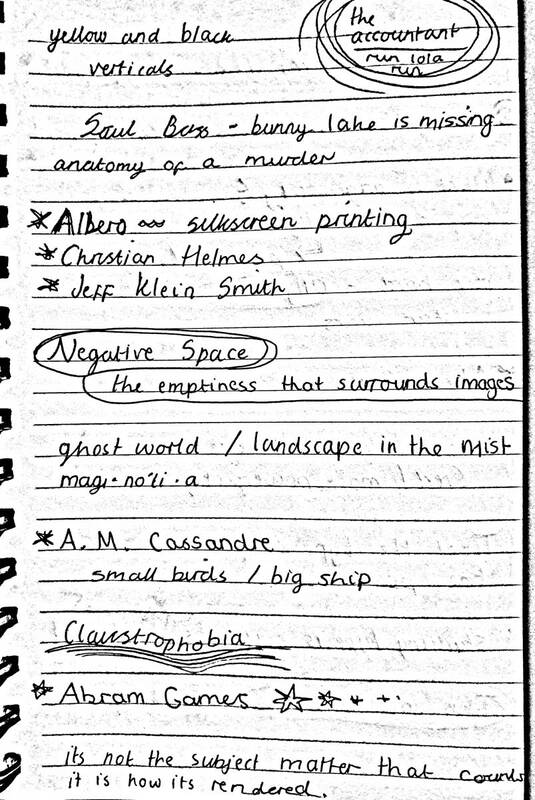 yellow and black
verticals
the
accountant
run lola
run
Saul Bass - bunny lake is missing
anatomy of a murder
Albero ~ silkscreen printing
Christian Helmes
Jeff Klein Smith
Negative Space
the emptiness that surrounds images
ghost world / landscape in the mist
magi·no'li·a
A.M. Cassandre
small birds / big ship
Claustrophobia
Abram Games
its not the subject matter that counts
it is how its rendered.